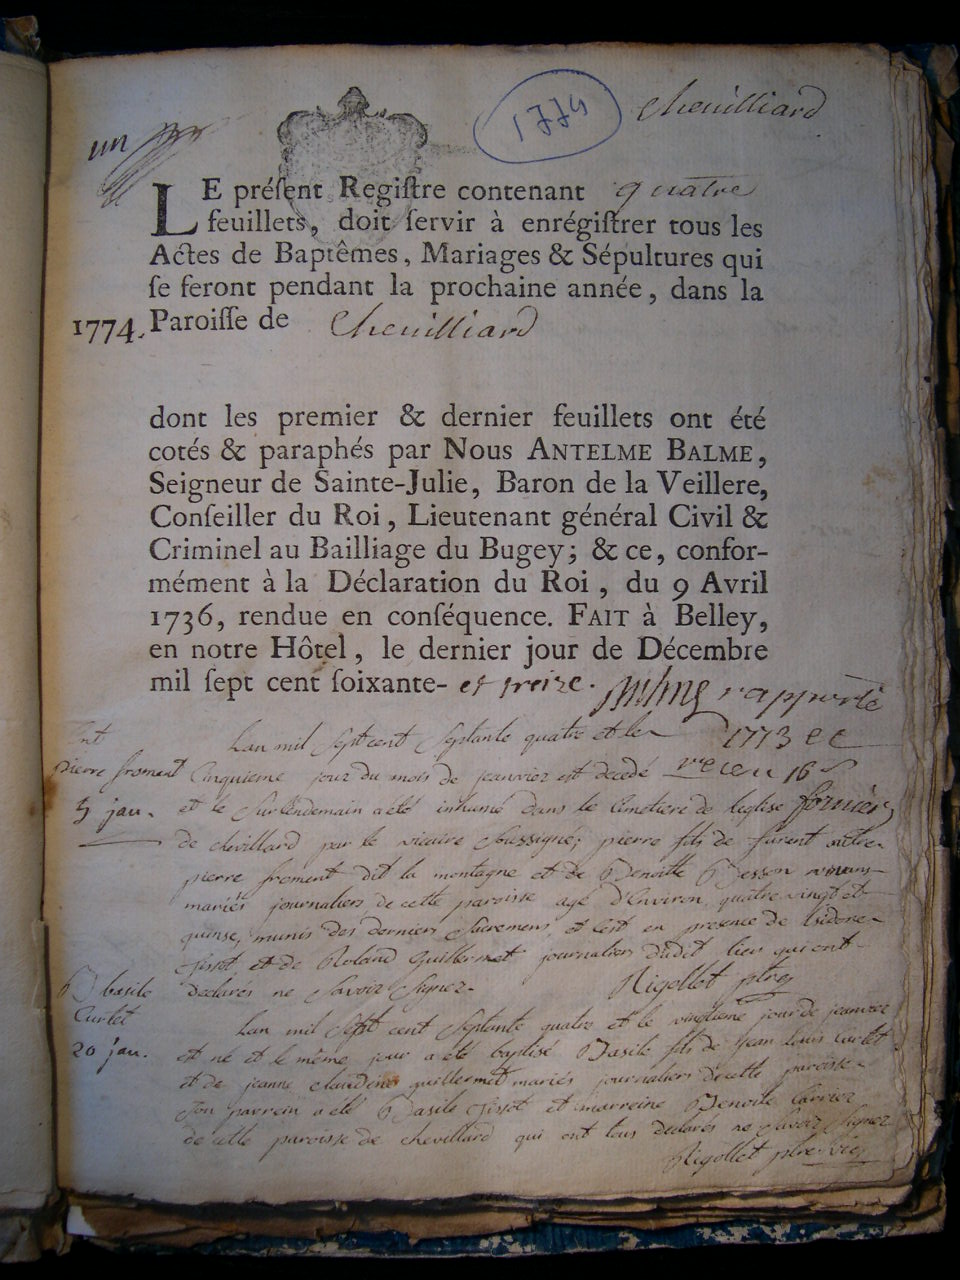 un
1774
Cheuilliard
LE préſent Regiſtre contenant quatre
feuillets, doit ſervir à enrégiſtrer tous les
Actes de Baptêmes, Mariages & Sépultures qui
ſe feront pendant la prochaine année, dans la
1774. Paroiſſe de Cheuilliard
dont les premier & dernier feuillets ont été
cotés & paraphés par Nous ANTELME BALME,
Seigneur de Sainte-Julie, Baron de la Veillere,
Conſeiller du Roi, Lieutenant général Civil &
Criminel au Bailliage du Bugey; & ce, confor-
mément à la Déclaration du Roi, du 9 Avril
1736, rendue en conſéquence. FAIT à Belley,
en notre Hôtel, le dernier jour de Décembre
mil ſept cent ſoixante- et treize.
rapporté
1773 et
Ent
pierre froment
5 jan.
Lan mil Sept cent Septante quatre et le
Cinquieme jour du mois de jeanvier est decedé
et le Surlendemain a été inhumé dans le Cimetiere de leglise
de chevillard par le vicaire Soussigné; pierre fils de furent autre
pierre froment dit la montagne et de Benoitte Besson vivans
mariés journaliers de cette paroisse agé d'Environ quatre vingt et
quinse, munis des derniers Sacremens et C'est en presence de Isidore
Tissot et de Roland Guillermet journaliers dudit lieu qui ont
Declarés ne Savoir Signer.
Rigollet ptre
B basile
Curtet
20 jan.
Lan mil Sept cent Septante quatre et le vingtieme jour de jeanvier
est né et le même jour a été baptisé Basile fils de Jean Louis curtet
et de jeanne claudine guillermet mariés journaliers de cette paroisse
Son parrein a été Basile Tissot et marreine Benoite Carrier
de cette paroisse de chevillard qui ont tous Declarés ne Savoir Signer
Rigollet ptre vic